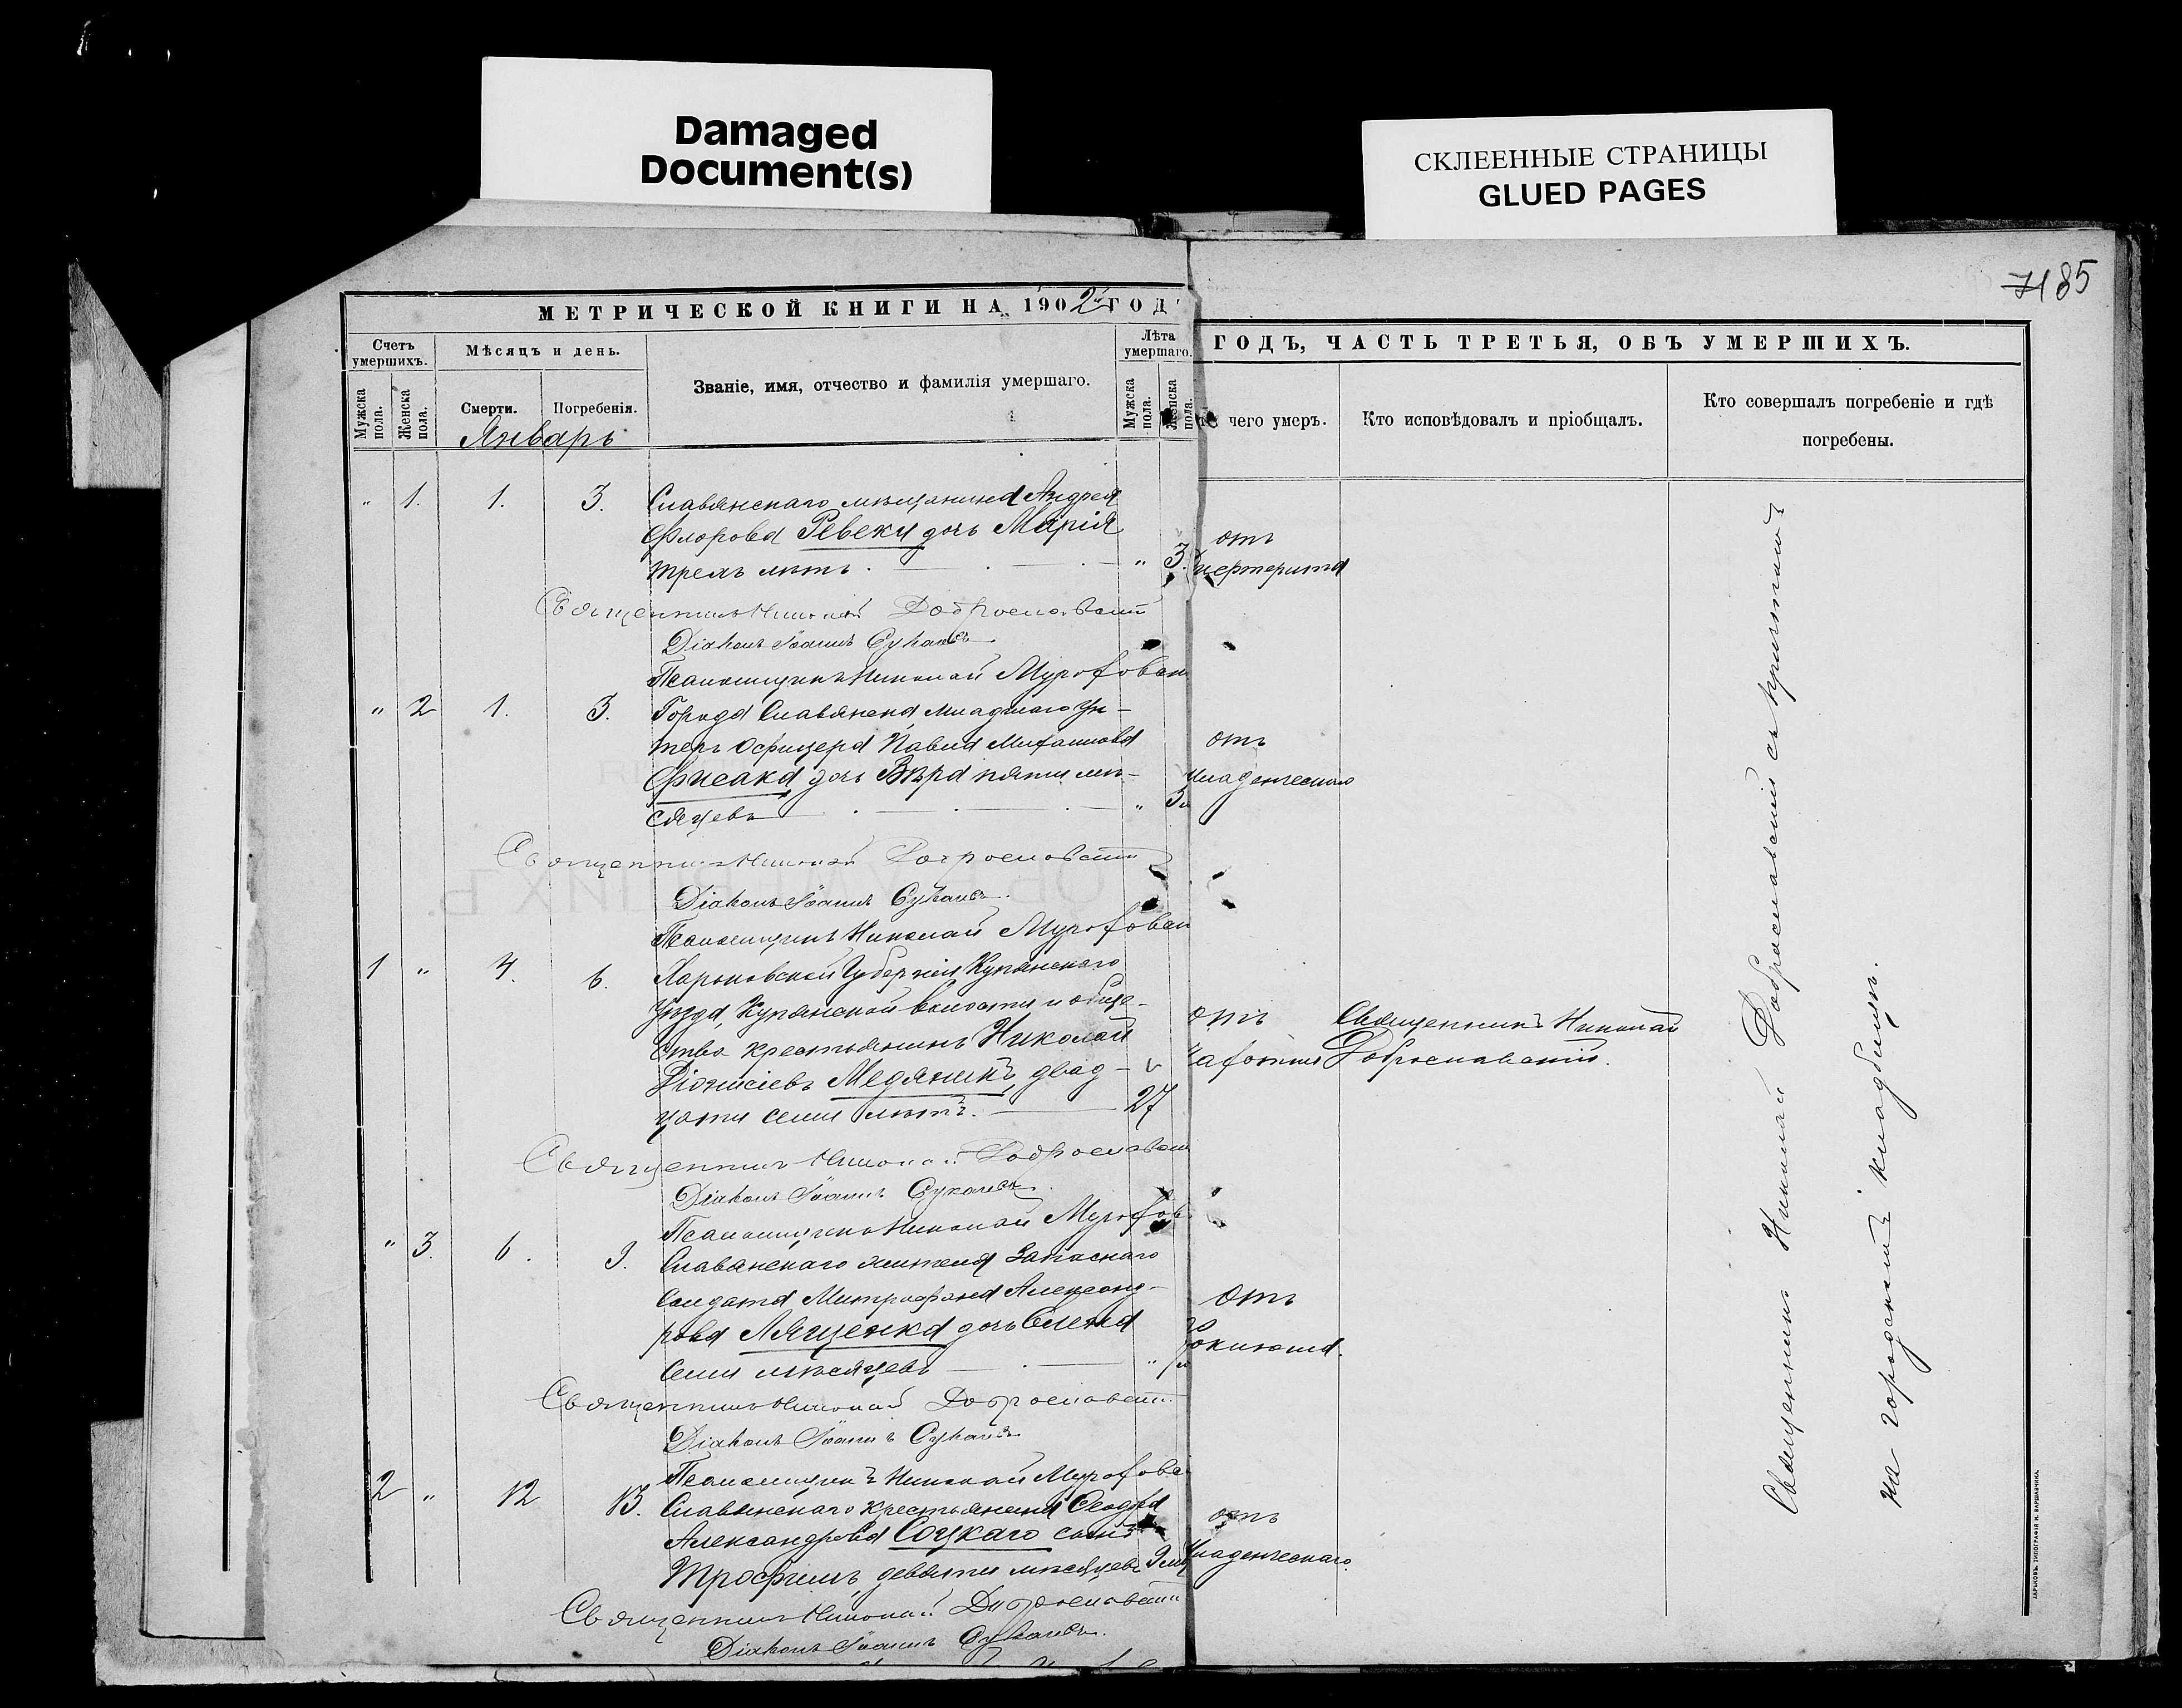 Damaged
Document(s)
СКЛЕЕННЫЕ СТРАНИЦЫ
GLUED PAGES
85
МЕТРИЧЕСКОЙ КНИГИ НА 1902й ГОД
Счетъ умершихъ.
Мужска пола.
Женска пола.
Мѣсяцъ и день.
Смерти.
Погребенія.
Январь
Званіе, имя, отчество и фамилія умершаго.
Лѣта умершаго.
Мужска пола.
Женска пола.
ГОДЪ, ЧАСТЬ ТРЕТЬЯ, ОБЪ УМЕРШИХЪ.
чего умеръ.
Кто исповѣдовалъ и пріобщалъ.
Кто совершалъ погребеніе и гдѣ
погребены.
" 1. 1. 3. Славянскаго мѣщанина Андрея
Флорова Ревеки дочь Марія
трехъ лѣтъ. " 3.
отъ
дифтерита
Священникъ Николай Доброславскій
Діаконъ Іоаннъ Сукачевъ
Псаломщикъ Николай
" 2 1. 3. Города Славянска младшаго ун-
теръ офицера Павла Михаилова
Фисака дочь Вѣра пяти мѣ-
сяцевъ " 5м
отъ
младенческаго
Священникъ Николай Доброславскій
Діаконъ Іоаннъ Сукачевъ.
Псаломщикъ Николай
1 " 4. 6. Харьковской Губерніи Купянскаго
уѣзда, Купянской волости и обще-
ства крестьянинъ Николай
Діонисіевъ Медяникъ, двад-
цати семи лѣтъ. 27
отъ
чахотки
Священникъ Николай
Доброславскій.
Священникъ Николай Доброславскій
Діаконъ Іоаннъ Сукачевъ.
Псаломщикъ Николай
" 3. 6. 9. Славянскаго жителя Запаснаго
Солдата Митрофана Александ-
рова Лященка дочь Елена
семи мѣсяцевъ "
отъ
коклюша.
Священникъ Николай Доброславскій
Діаконъ Іоаннъ Сукачевъ
Псаломщикъ Николай
2 " 12 13. Славянскаго крестьянина Феодора
Александрова Соцкаго сынъ
Трофимъ, девяти мѣсяцевъ 9 мѣ
отъ
младенческаго.
Священникъ Николай Доброславскій
Діаконъ Іоаннъ Сукачевъ.
Священникъ Николай Доброславскій съ причтомъ
на городскомъ кладбищѣ.
ХАРЬКОВЪ. ТИПОГРАФІЯ И. ВАРШАВЧИКА.